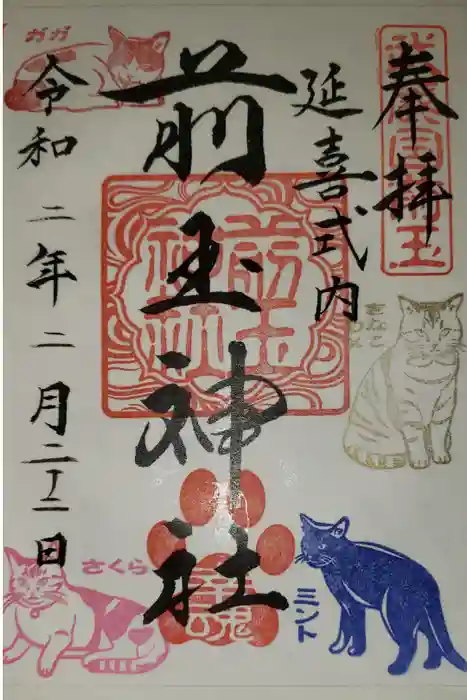 奉拝
延喜式内
前玉神社
令和二年二月二十二日
ガガ
きなこ
さくら
ミント
前玉神社
幸魂